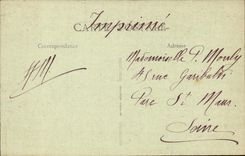 Imprimé
CA
Correspondance
Adresse
Mademoiselle P. Mouly
rue Garibaldi
Parc St Maur
Seine